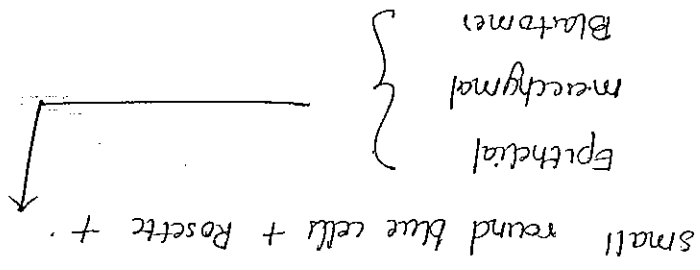 small round blue cells + Rosette +
Epithelial
mesechymal
Blastomes